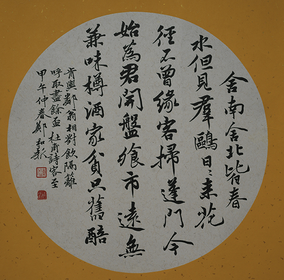 舍南舍北皆春
水但見羣鷗日日来花
徑不曾緣客掃蓬門今
始為君開盤飧市遠無
兼味樽酒家貧只舊醅
肯與鄰翁相對飲隔籬
呼取盡餘盃杜甫詩客至
甲午仲春鄭和